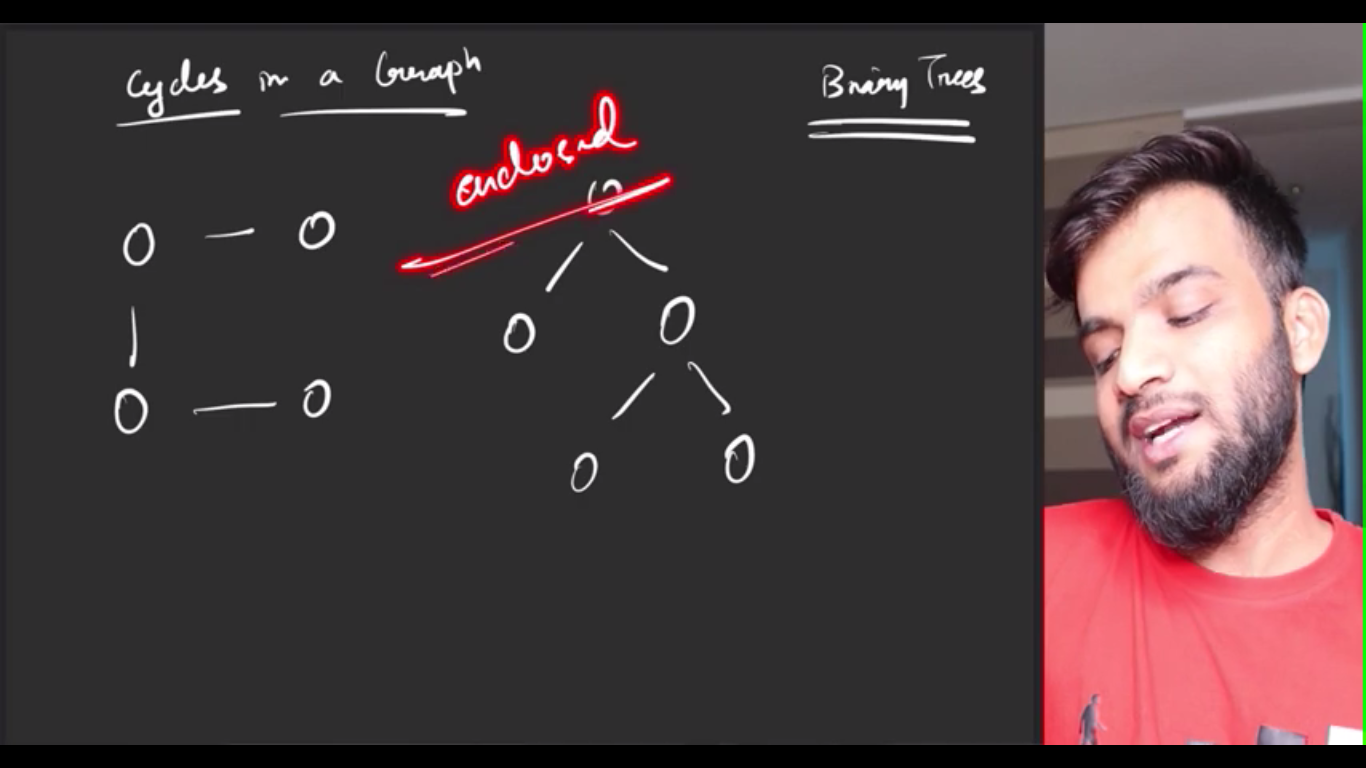 Cycles in a Graph
Binary Trees
enclosed